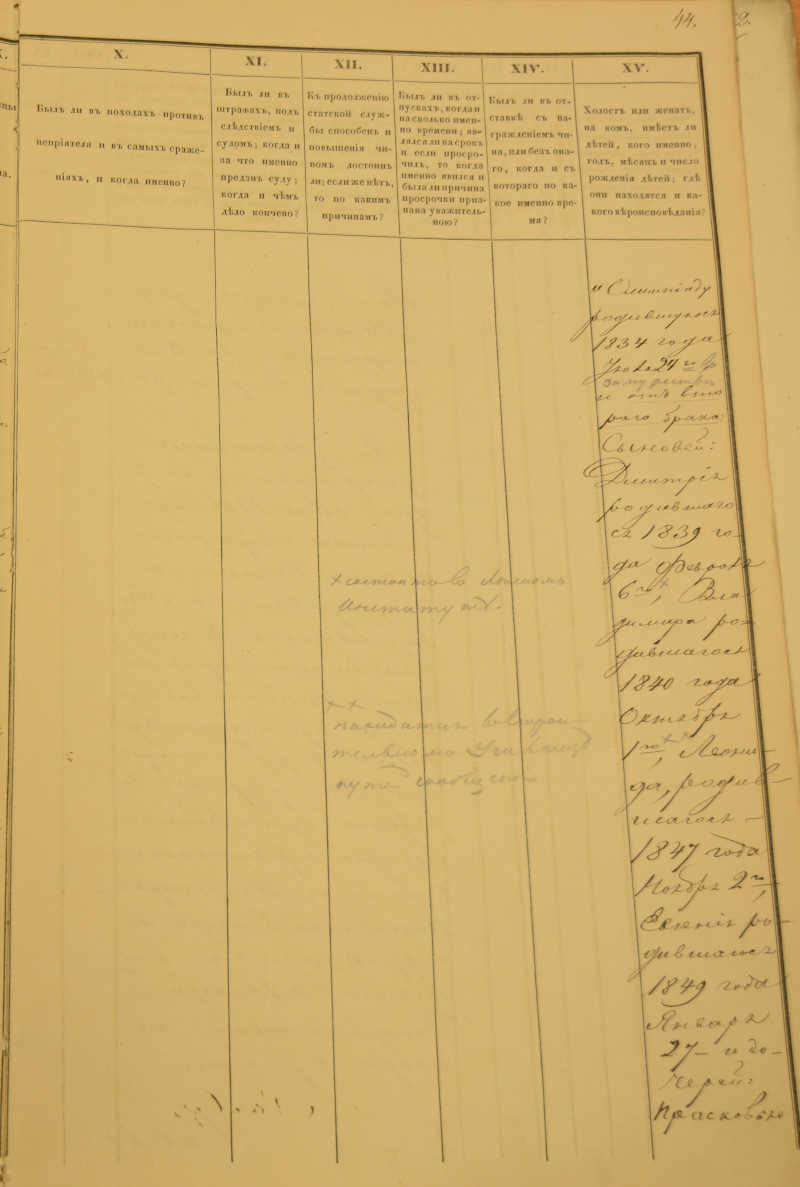 44.
X.
Былъ ли въ походахъ противъ
непріятеля и въ самыхъ сраже-
ніяхъ, и когда именно?
XI.
Былъ ли въ
штрафахъ, подъ
слѣдствіемъ и
судомъ; когда и
за что именно
преданъ суду;
когда и чѣмъ
дѣло кончено?
XII.
Къ продолженію
статской служ-
бы способенъ и
повышенія чи-
номъ достоинъ
ли; если же нѣтъ,
то по какимъ
причинамъ?
XIII.
Былъ ли въ от-
пускахъ, когда и
на сколько имен-
но времени; яв-
лялся ли на срокъ
и если просро-
чилъ, то когда
именно явился и
была ли причина
просрочки приз-
нана уважитель-
ною?
XIV.
Былъ ли въ от-
ставкѣ съ на-
гражденіемъ чи-
на, или безъ она-
го, когда и съ
котораго по ка-
кое именно вре-
мя?
XV.
Холостъ или женатъ,
на комъ, имѣетъ ли
дѣтей, кого именно;
годъ, мѣсяцъ и число
рожденія дѣтей; гдѣ
они находятся и ка-
кого вѣроисповѣданія?
и Олимпіаду
родившуюся
1834 года
24
и отъ вто
раго брака:
Сыновей:
Димитрія
родившаго
ся 1839 го
да Февраля
6го, Вла
димира ро
дившагося
1840 года
Октября
1го, Леони
да, родив
шагося
1847 года
Ноября 2го,
Евгенія ро
дившагося
1849 года
Января
27 и до
черей:
Прасковью